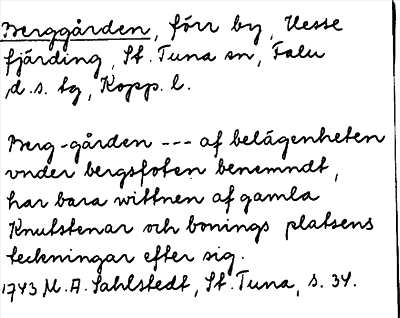 Berggården, förr by, Uesse
fjärding, St. Tuna sn, Falu
d.s. tg, Kopp. l.
Berg-gården --- af belägenheten
vnder bergsfoten benemndt,
har bara wittnen af gamla
Knutstenar och bonings platsens
teckningar efter sig.
1743 M. A. Sahlstedt, St. Tuna, s. 34.